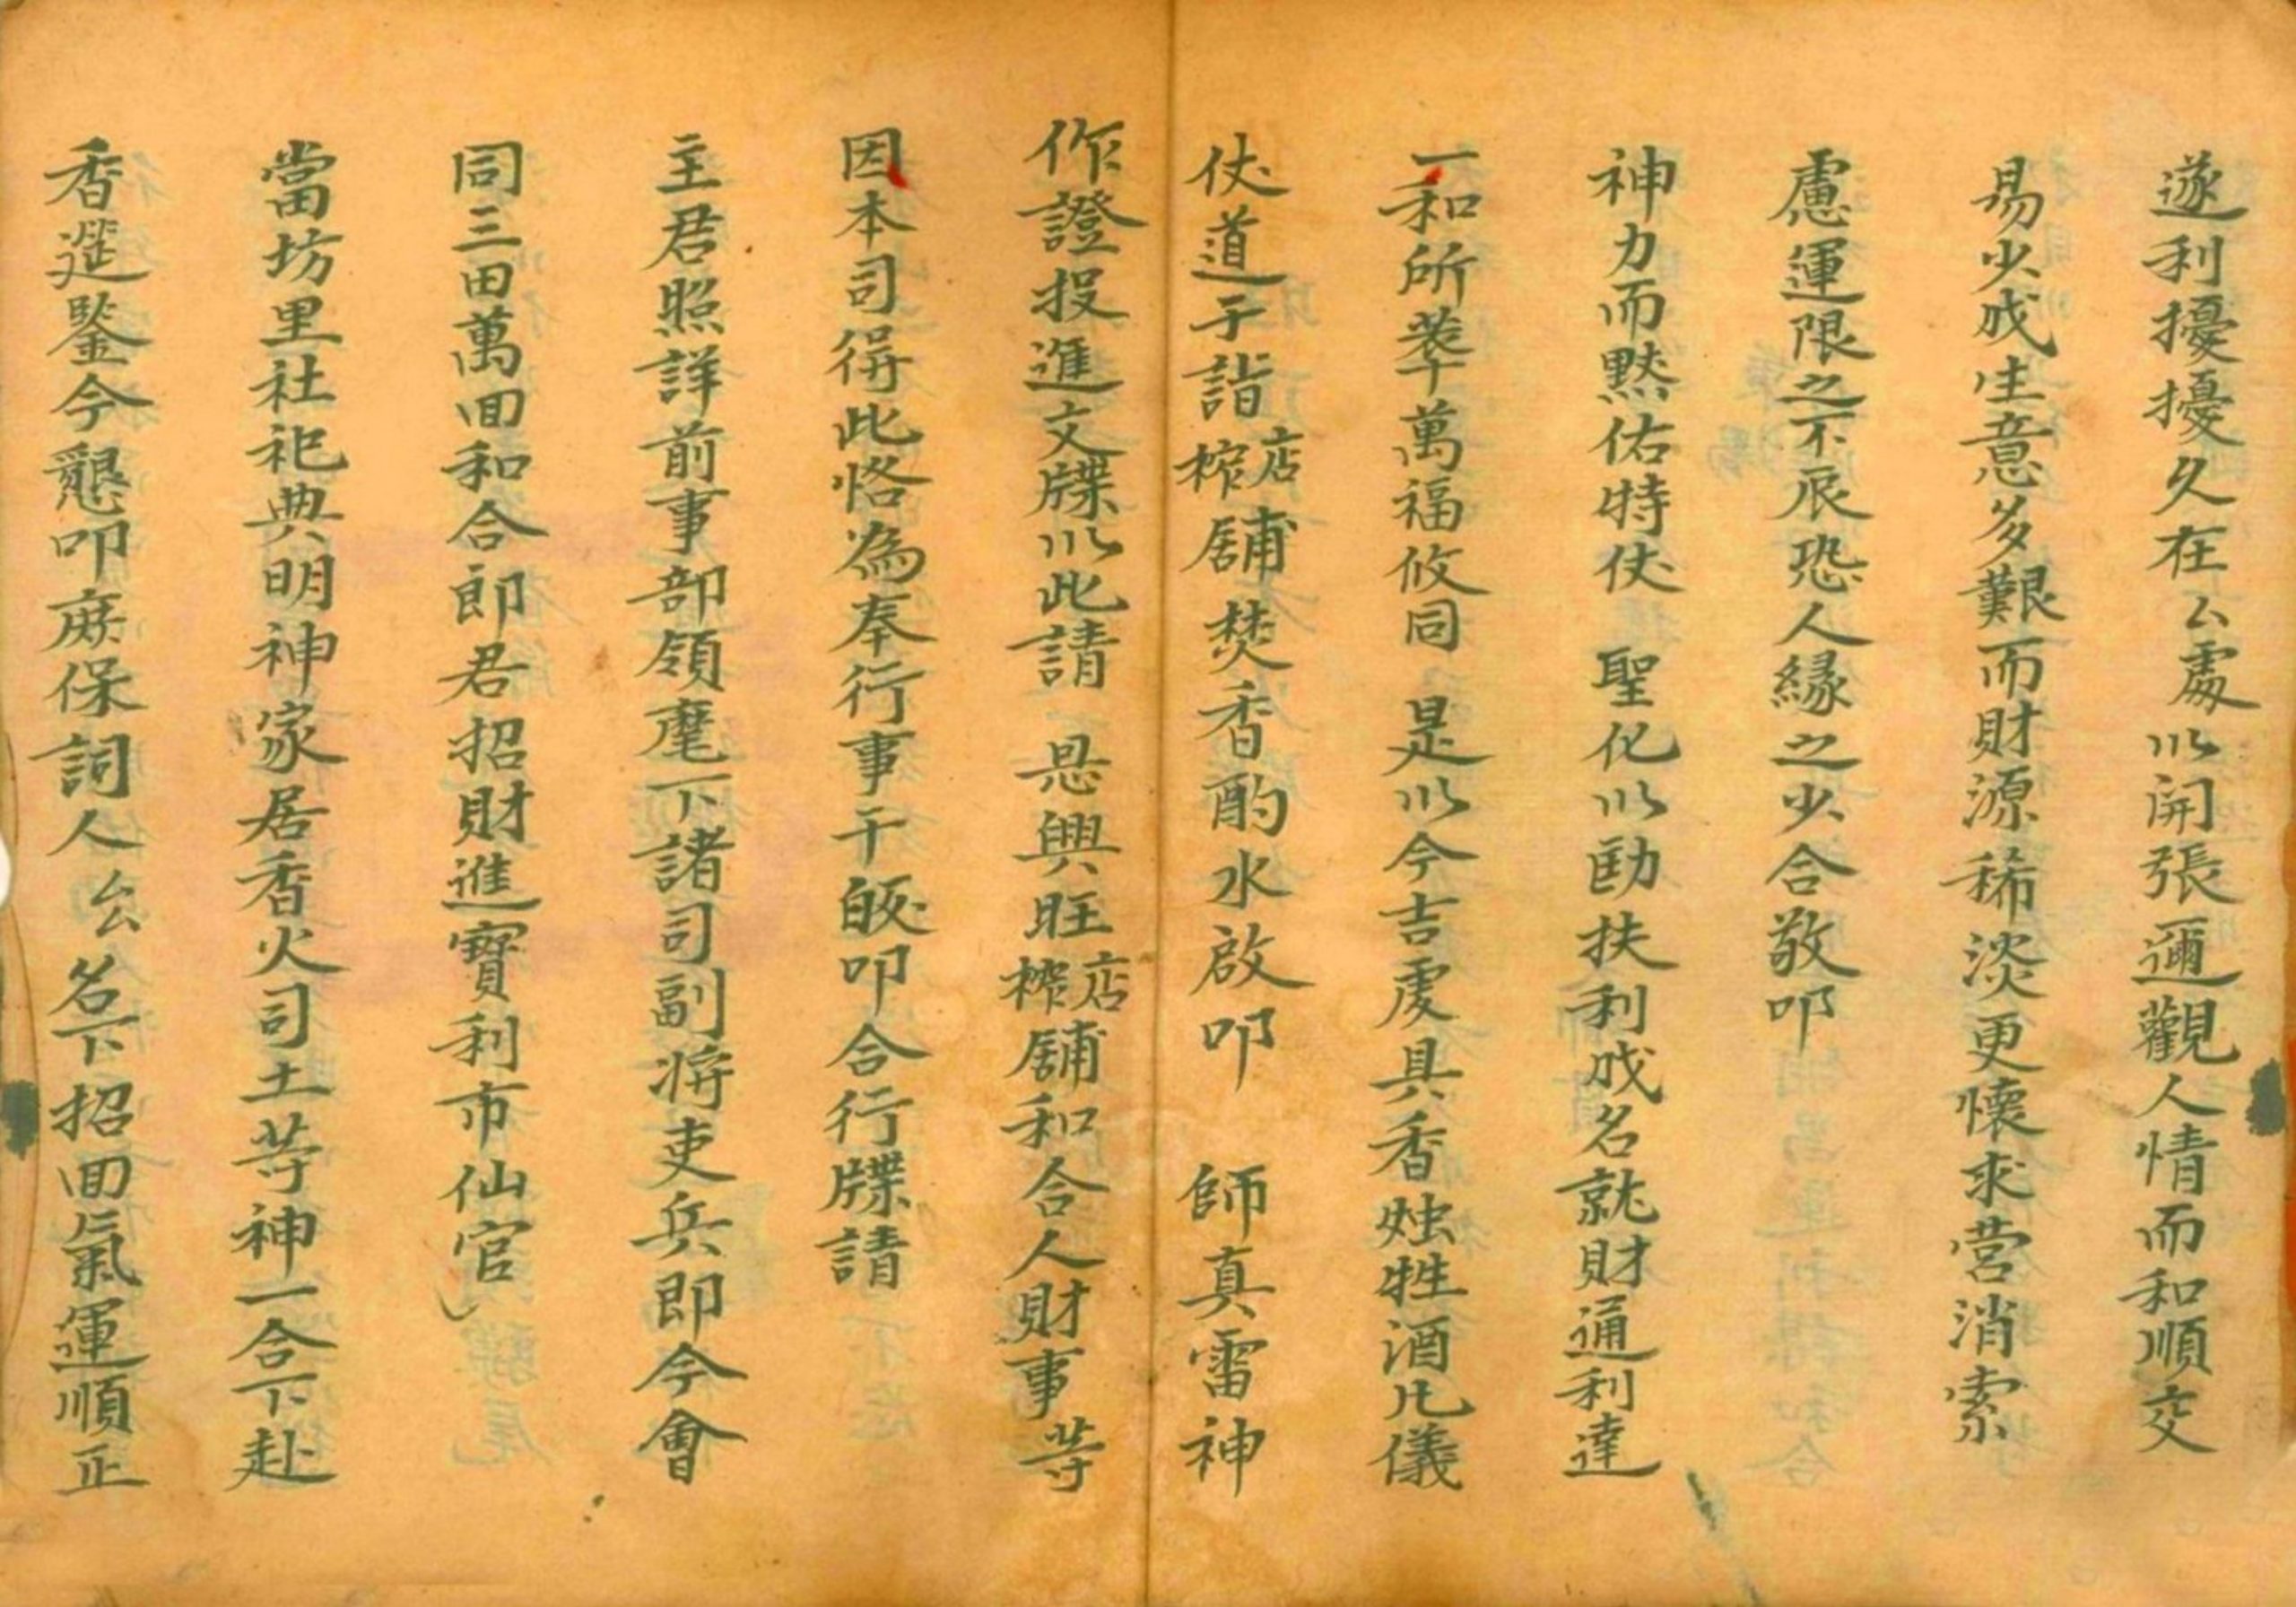 遂利擾擾久在厶處以開張邇觀人情而和順交
易少成生意多艱而財源稀淡更懷求营消索
慮運限之不辰恐人緣之少合敬叩
神力而默佑特仗 聖化以勛扶利成名就財通利達
一和所萃萬福攸同 是以今吉虔具香烛牲酒凢儀
仗道于詣榨店舖焚香酌水啟叩 師真雷神
作證投進文牒以此請 恳興旺榨店舖和合人財事等
因本司得此恪為奉行事干皈叩合行牒請
主君照詳前事部領麾下諸司副將吏兵即今會
同三田萬囬和合郎君招財進寳利市仙官
當坊里社祀典明神家居香火司土等神一合下赴
香筵鑒今懇叩庥保詞人厶名下招囬氣運順正